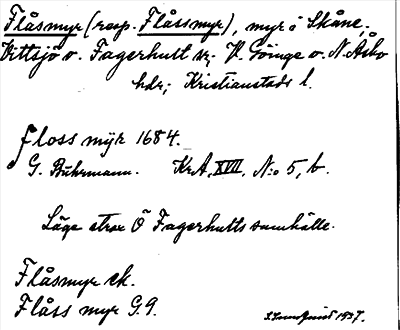 Flåsmyr (resp. Flåssmyr), myr i Skåne,
Vittsjö o. Fagerhult sr; V. Göinge o. N. Åsbo
hdr; Kristianstads l.
floss myr 1684.
G. Buhrmann. KrA, XVII, N:o 5, b.
Läge strax Ö Fagerhults samhälle.
Flåsmyr ek.
Flåss myr G.9.
1937.